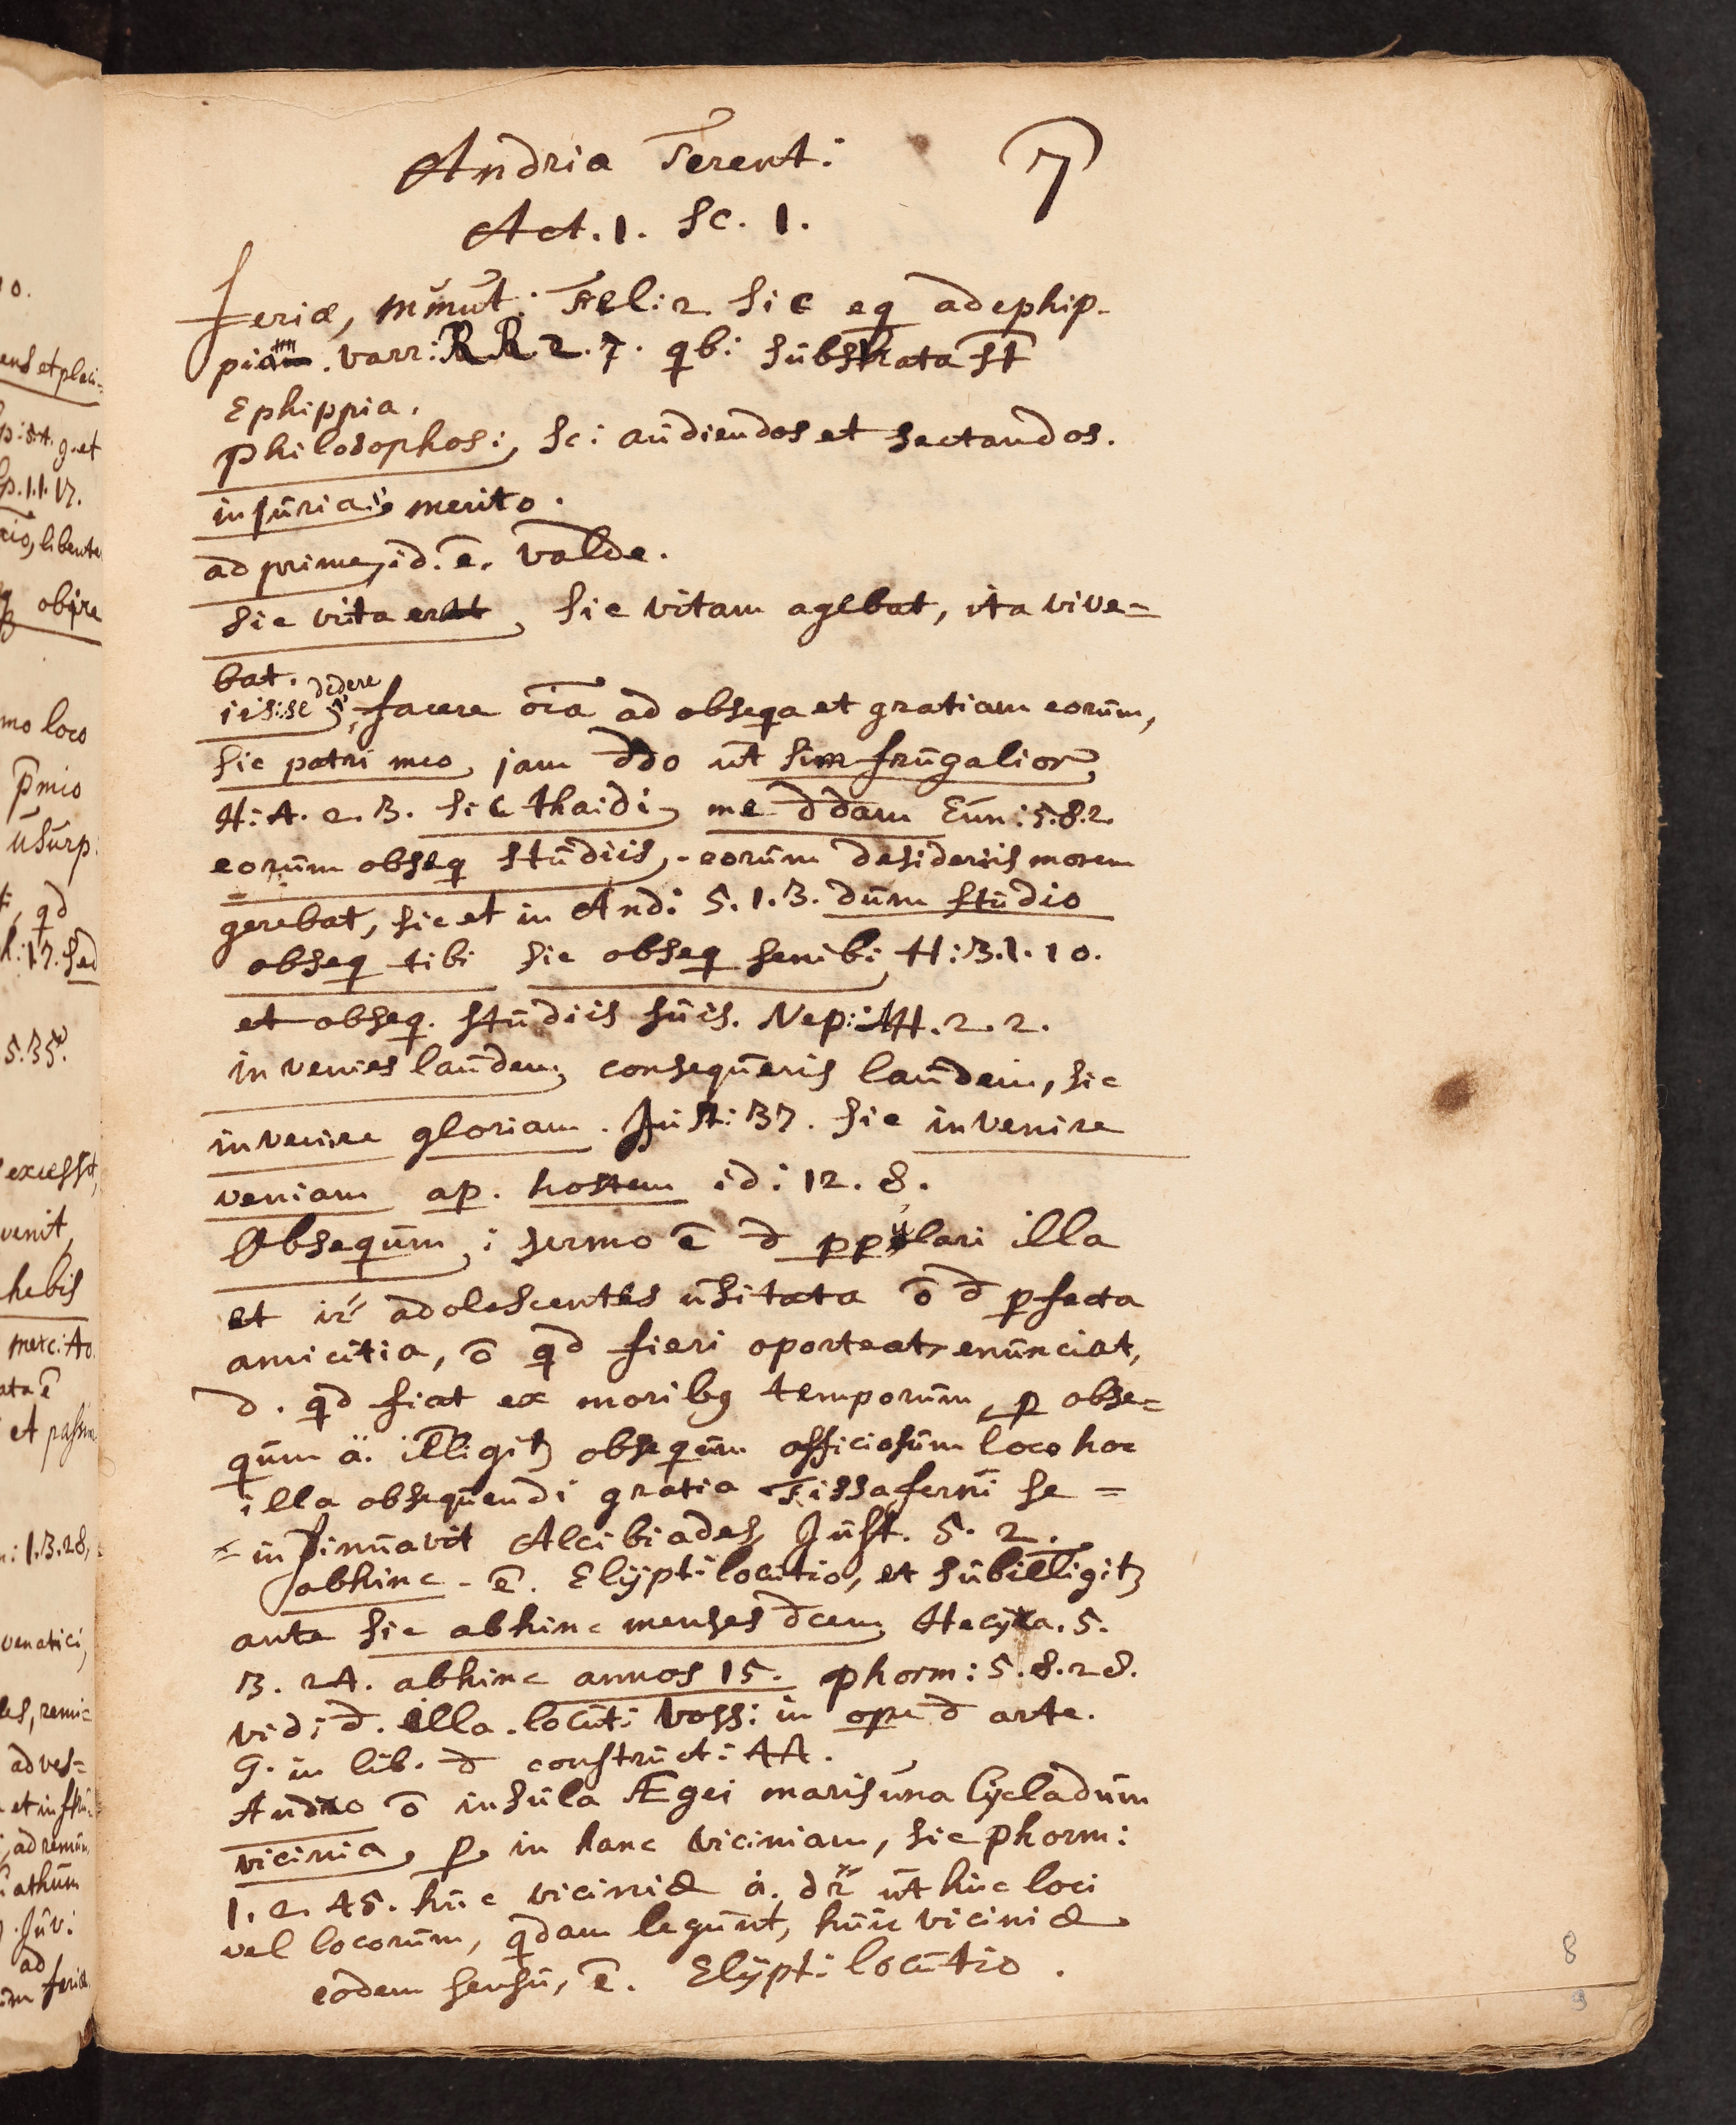 Andria Terent: 7
Act. 1. Sc. 1.
feriæ, Minut: Fel: 2 sic eq adephip-
pium. Varr: R R. 2. 7. qb: substrata st
Ephippia.
Philosophos; sc: audiendos et sectandos.
injuria; merito.
adprime, id. ē. valde.
sic vita erat, sic vitam agebat, ita vive=
bat.
iis se dedere, facere oīa ad obseqa et gratiam eorum,
sic patri meo, jam ddo ut sim frugalior,
H: A. 2. 3. sic thaidi, me ddam Eun: 5. 8. 2.
eorum obseq studiis, eorum desideriis morem
gerebat, sic et in And: 5. 1. 3. dum studio
obseq tibi sic obseq senibi, H: 3. 1. 10.
et obseq. studiis suis. Nep: Att. 2. 2.
invenies laudem, consequeris laudem, sic
invenire gloriam. Just: 37. sic invenire
veniam ap. hostem id: 12. 8.
Obsequm; sermo ē d ppulari illa
et ir adolescentes usitata ō d pfecta
amicitia, ō qd fieri oporteat, enunciat,
d. qd fiat ex moribq temporum, p obse=
qum ä. illigitz obsequm officiosum loco hoc
illa obsequendi gratia Tissaferni se =
= insinuavit Alcibiades, Just. 5. 2.
abhinc. ē. Elÿpt: locutio, et subilligitz
ante sic abhinc menses dcem, Hecÿra. 5.
3. 24. abhinc annos 15. phorm: 5. 8. 28.
vid: d. illa. locut: Voss: in ope d arte.
G. in lib. d construct: 44.
Andro ō insula Ægei maris una Cÿcladum
vicinia, p. in hanc viciniam, sic Phorm:
1. 2. 45. huc viciniæ ä. dr ut huc loci
vel locorum, qdam legunt, huic viciniæ
eodem sensu, ē. Elÿpt: locutio.
8
9